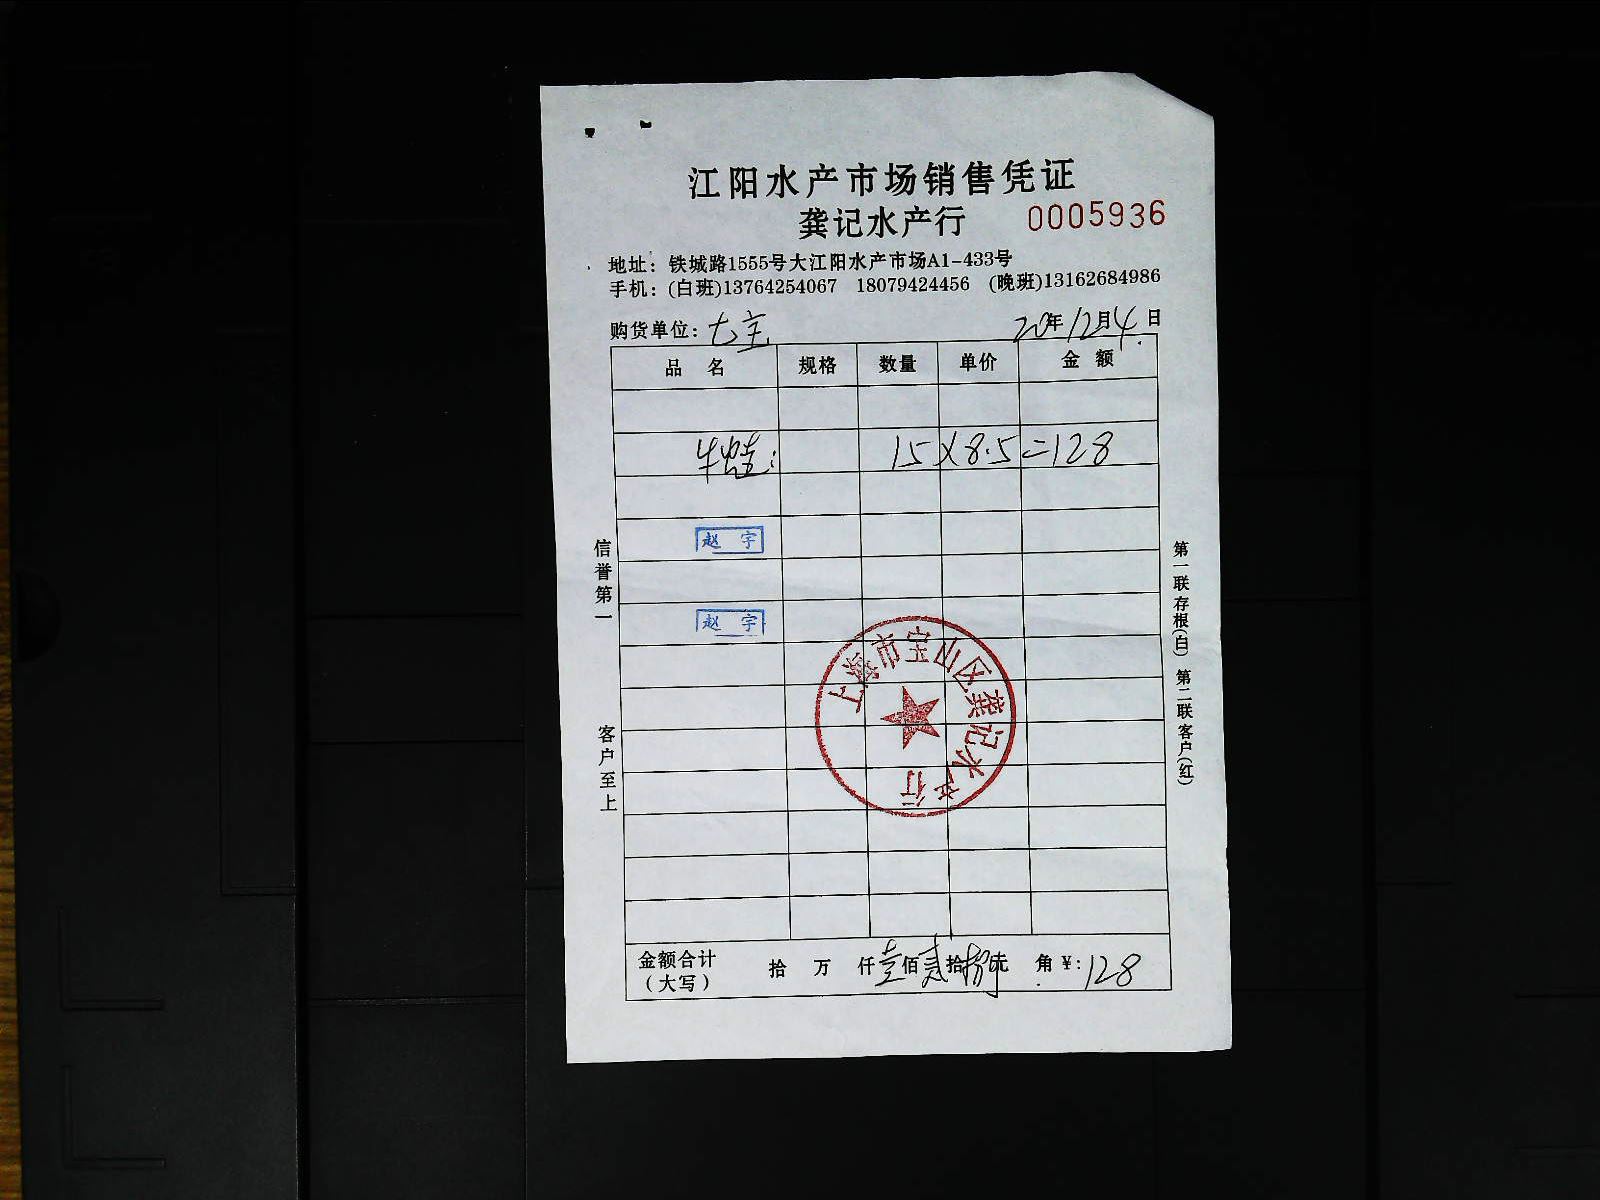 江阳水产市场销售凭证
龚记水产行 0005936
地址：铁城路1555号大江阳水产市场A1-433号
手机：(白班)13764254067 18079424456 (晚班)13162684986
购货单位：七宝 20年12月4日
品名 规格 数量 单价 金额
牛蛙： 15×8.5=128
赵宇
赵宇
上海市宝山区龚记水产行
信誉第一
客户至上
第一联存根(白) 第二联客户(红)
金额合计 拾 万 仟壹佰贰拾捌元 角 ¥:128
（大写）